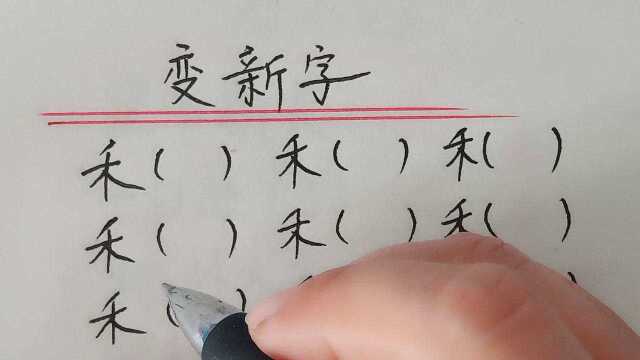 变新字
禾( ) 禾( ) 禾( )
禾( ) 禾( ) 禾( )
禾( )